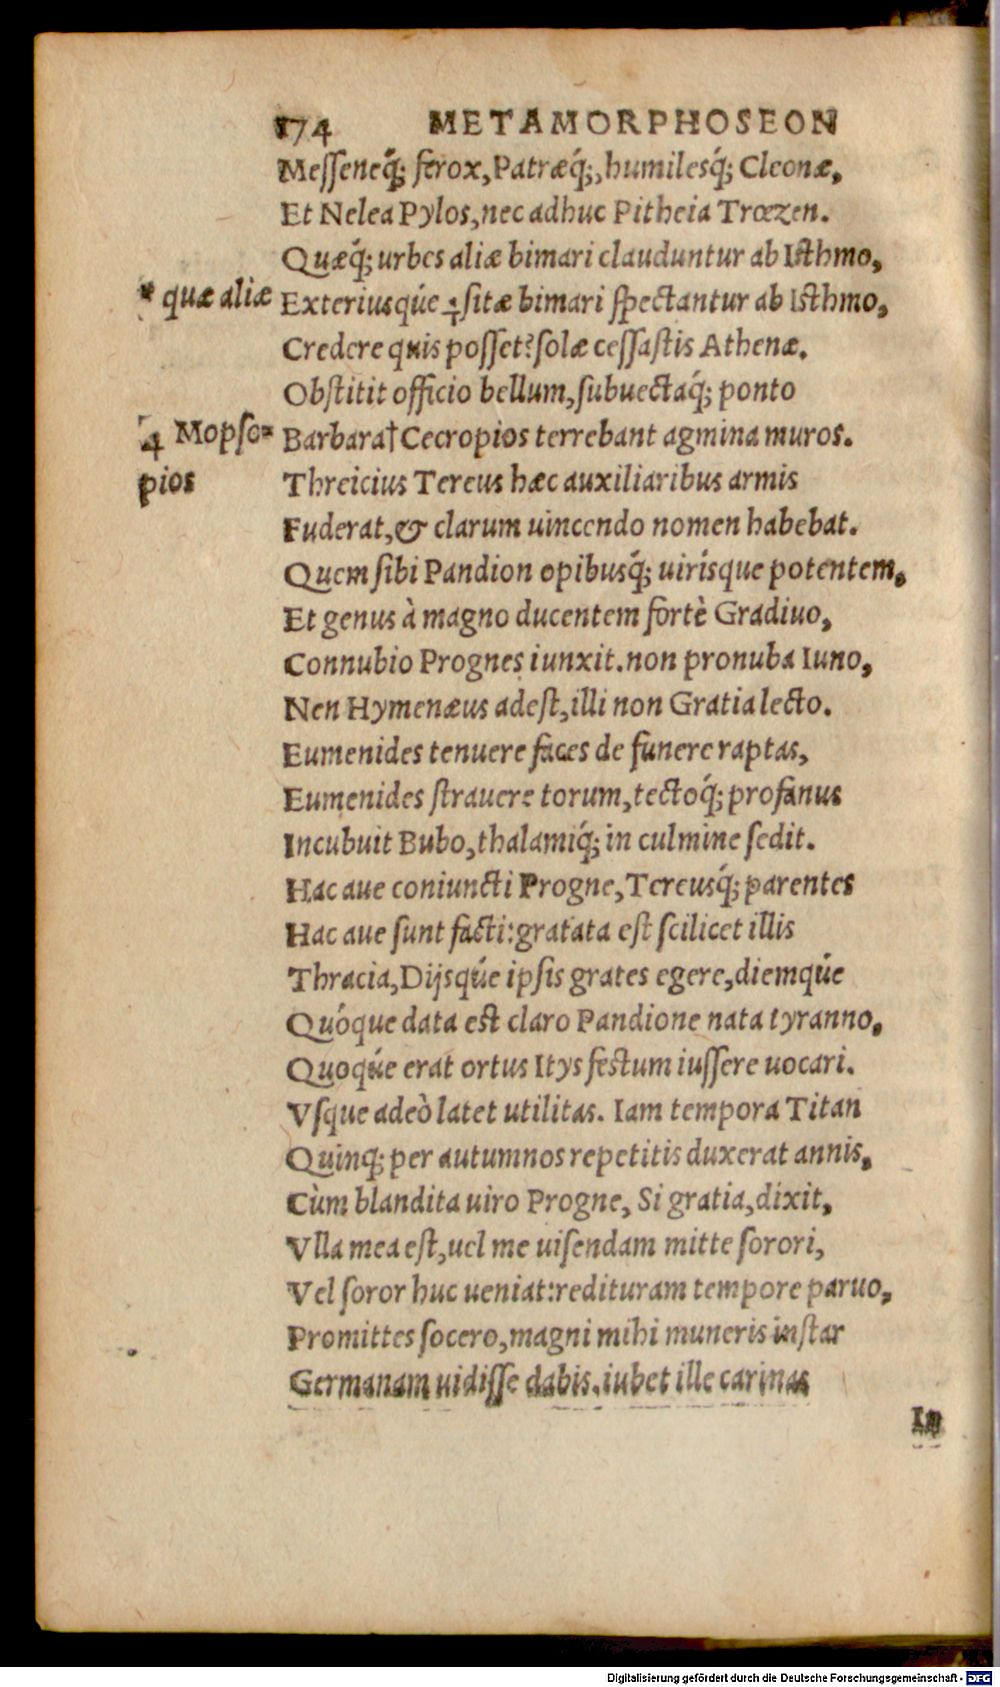 174 METAMORPHOSEON
Messeneq́; ferox, Patræq́;, humilesq́; Cleonæ,
Et Nelea Pylos, nec adhuc Pitheia Trœzen.
Quæq́; urbes aliæ bimari clauduntur ab Isthmo,
* quæ aliæ
Exteriusqúe ⁜ sitæ bimari spectantur ab Isthmo,
Credere quis posset? solæ cessastis Athenæ.
Obstitit officio bellum, subuectaq́; ponto
4 Mopso=
Barbara† Cecropios terrebant agmina muros.
pios
Threicius Tereus hæc auxiliaribus armis
Fuderat, & clarum uincendo nomen habebat.
Quem sibi Pandion opibusq́; uirísque potentem,
Et genus à magno ducentem fortè Gradiuo,
Connubio Prognes iunxit. non pronuba Iuno,
Nen Hymenæus adest, illi non Gratia lecto.
Eumenides tenuere faces de funere raptas,
Eumenides strauere torum, tectoq́; profanus
Incubuit Bubo, thalamiq́; in culmine sedit.
Hac aue coniuncti Progne, Tereusq́; parentes
Hac aue sunt facti: gratata est scilicet illis
Thracia, Dijsqúe ipsis grates egere, diemqúe
Quóque data est claro Pandione nata tyranno,
Quoqúe erat ortus Itys festum iussere uocari.
Vsque adeò latet utilitas. Iam tempora Titan
Quinq; per autumnos repetitis duxerat annis,
Cùm blandita uiro Progne, Si gratia, dixit,
Vlla mea est, uel me uisendam mitte sorori,
Vel soror huc ueniat: redituram tempore paruo,
Promittes socero, magni mihi muneris instar
Germanam uidisse dabis. iubet ille carinas
In
Digitalisierung gefördert durch die Deutsche Forschungsgemeinschaft - DFG